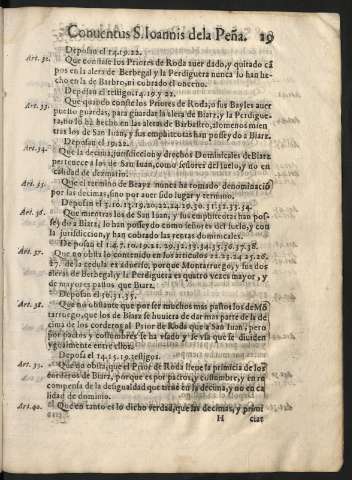 Conuentus S. Ioannis de la Peña. 29
Deposan el 14.19.22.
Art. 32. Que conste los Priores de Roda auer dado, y quitado cã
pos en la alera de Berbegal y la Perdiguera nunca lo han he
cho en la de Barbro, ni cobrado el onceno.
Deposan el testigo. 14.19 y 22.
Art. 33. Que quando conste los Priores de Roda, o sus Bayles auer
puesto guardas, para guardar la alera de Biarz, y la Perdigue
ra, no lo hã hecho en las aleras de Barbastro, alomenos mien
tras los de San Iuan, y sus emphiteotas han posseydo a Biarz.
Deposan el 19.22.
Art. 34. Que la decima, jurisdiccion, y drechos Dominicales de Biarz
pertenece a los de San Iuan, como señores del suelo, y no en
calidad de dezmatio.
Art. 35. Que el termino de Bearz nunca ha tomado denominaciõ
por las decimas, sino por auer sido lugar y termino.
Deposan el 3.10.13.19.20.22.24.29.30.31.32.33.34.
Art. 36. Que mientras los de San Iuan, y sus emphiteotas han pos-
seydo a Biarz, lo han posseydo como señores del suelo, y con
la jurisdiccion, y han cobrado las rentas dominicales.
De posan el 1.4.7.10.19.21.29.32.33.34.35.36.37.38.
Art. 37. Que no obsta lo contenido en los articulos 22.23.24.25.26.
27. de la cedula ex aduerso, porque Montarruego, y sus dos
aleras de Berbegal, y la Perdiguera es quatro vezes mayor, y
de mayores pastos que Biarz.
Deposan el 16.31.35.
Art. 38. Que no obstante que por ser muchos mas pastos los de Mõ
tarruego, que los de Biarz se huuiera de dar mas parte de la de
cima de los corderos al Prior de Roda que a San Iuan, pero
por pactos y costumbres se ha vsado y se vsa que se diuiden
ygualmente entre ellos.
Deposa el 14.15.19. testigos.
Art. 39. Que no obsta, que el Prior de Roda lleue la primicia de los
corderos de Biarz, porque es por pactos, y costumbre, y en re
compensa de la desigualdad que auia en la decima, y no en ca
lidad de dominio.
Art. 40. Que en tanto es lo dicho verdad, que las decimas, y primi
H ciac